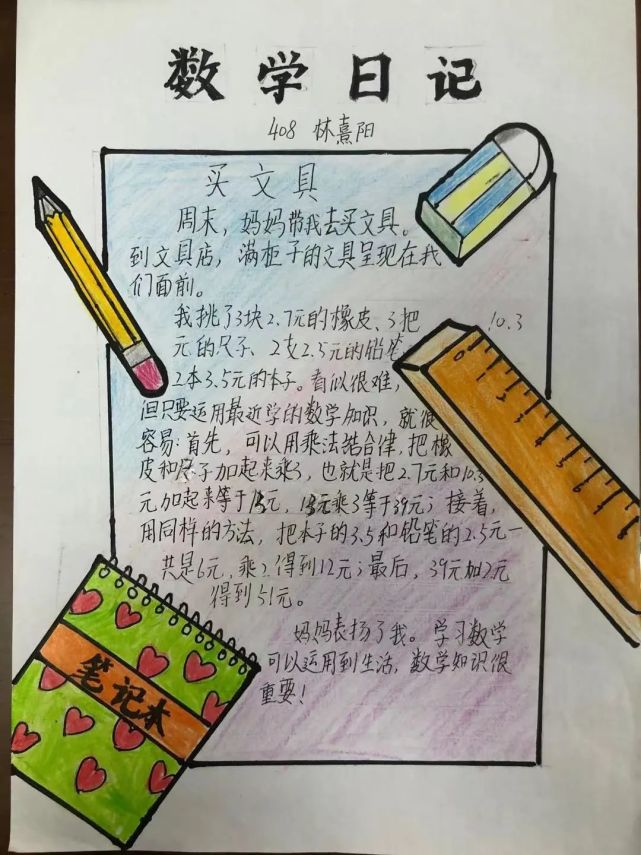 数学日记
408 林熹阳
买文具
周末，妈妈带我去买文具。
到文具店，满柜子的文具呈现在我
们面前。
我挑了3块2.7元的橡皮、3把 10.3
元的尺子、2支2.5元的铅笔、
2本3.5元的本子。看似很难，
但只要运用最近学的数学知识，就很
容易：首先，可以用乘法结合律，把橡
皮和尺子加起来乘3，也就是把2.7元和10.3
元加起来等于13元，13元乘3等于39元；接着，
用同样的方法，把本子的3.5和铅笔的2.5元一
共是6元，乘2得到12元；最后，39元加12元
得到51元。
妈妈表扬了我。学习数学
可以运用到生活，数学知识很
重要！
笔记本
0
1
2
3
4
5